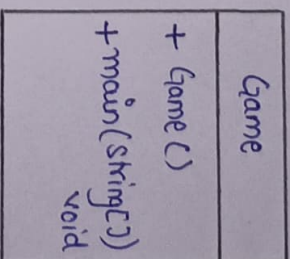 Game
+ Game()
+main(String[])
void